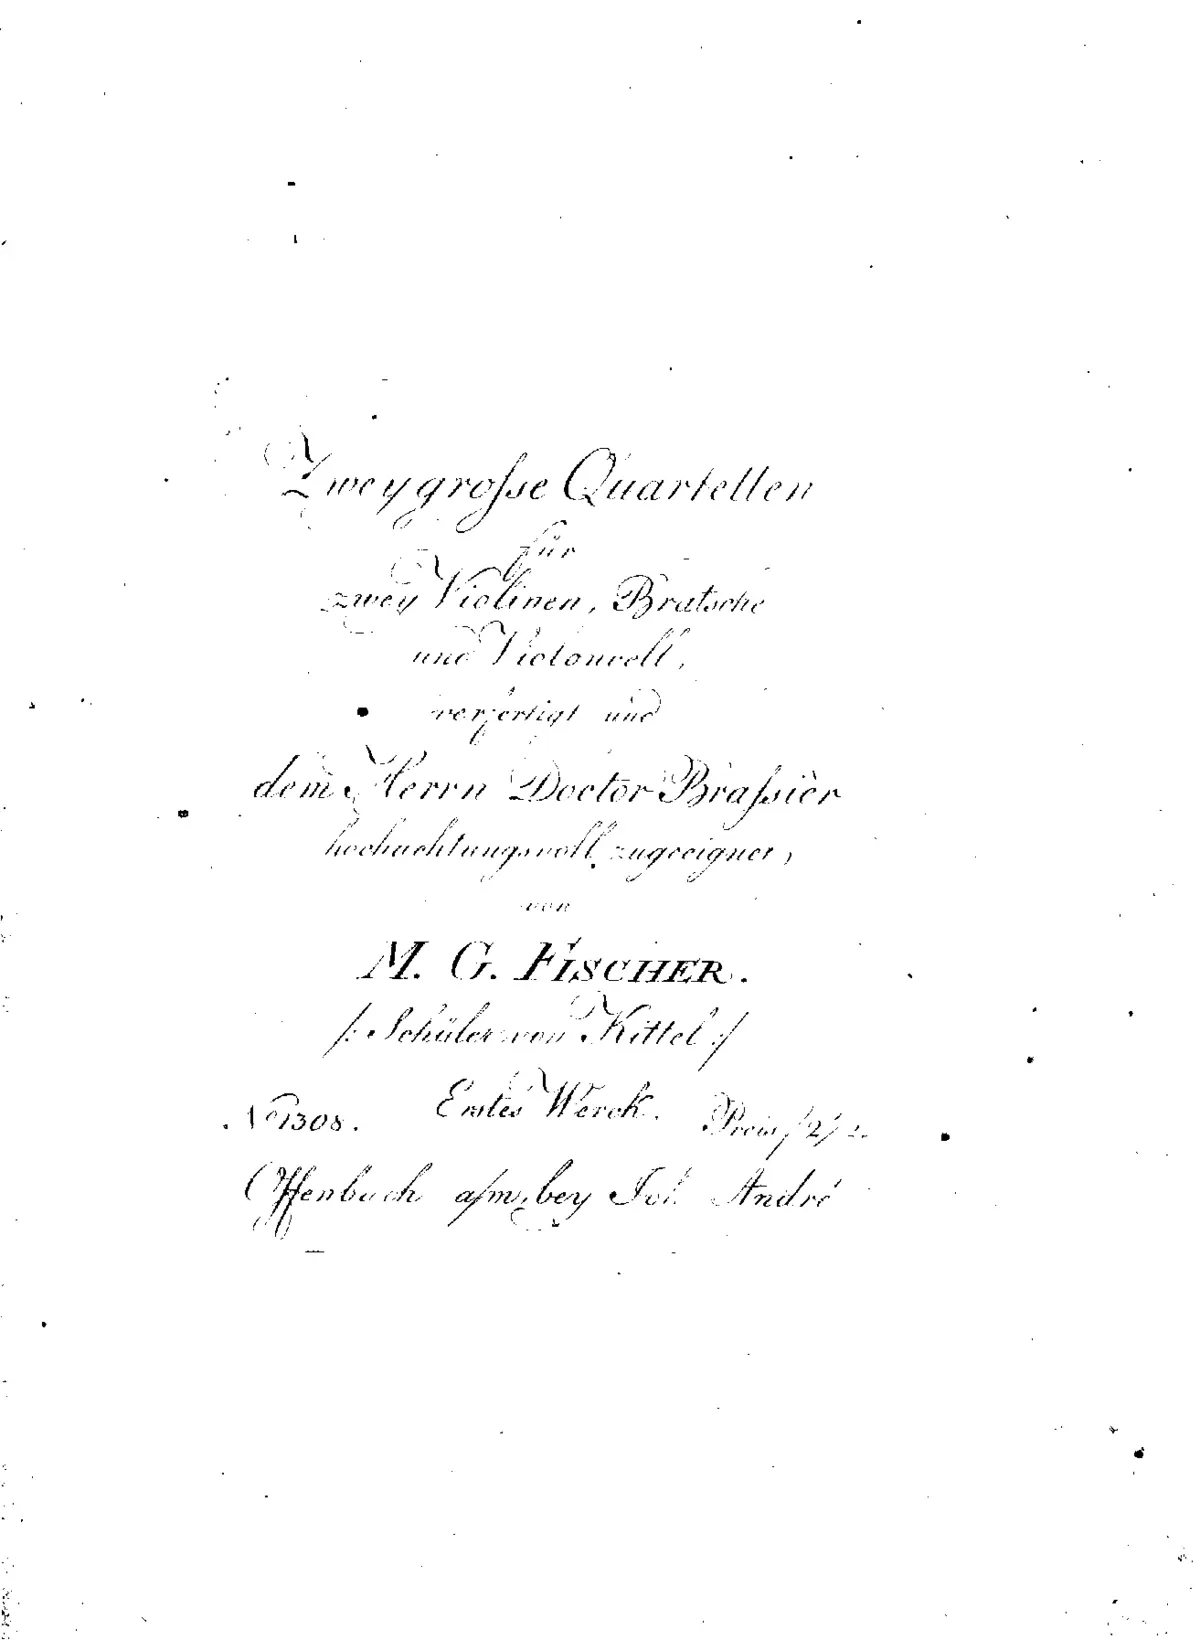 Zwey groſse Quartetten
für
zwey Violinen, Bratsche
und Violoncell,
verfertigt und
dem Herrn Doctor Braſsier
hochachtungsvoll zugeeignet,
von
M. G. FISCHER.
/: Schüler von Kittel :/
Erstes Werck.
No 1308. Preis f 2/
Offenbach a/m, bey Joh. André